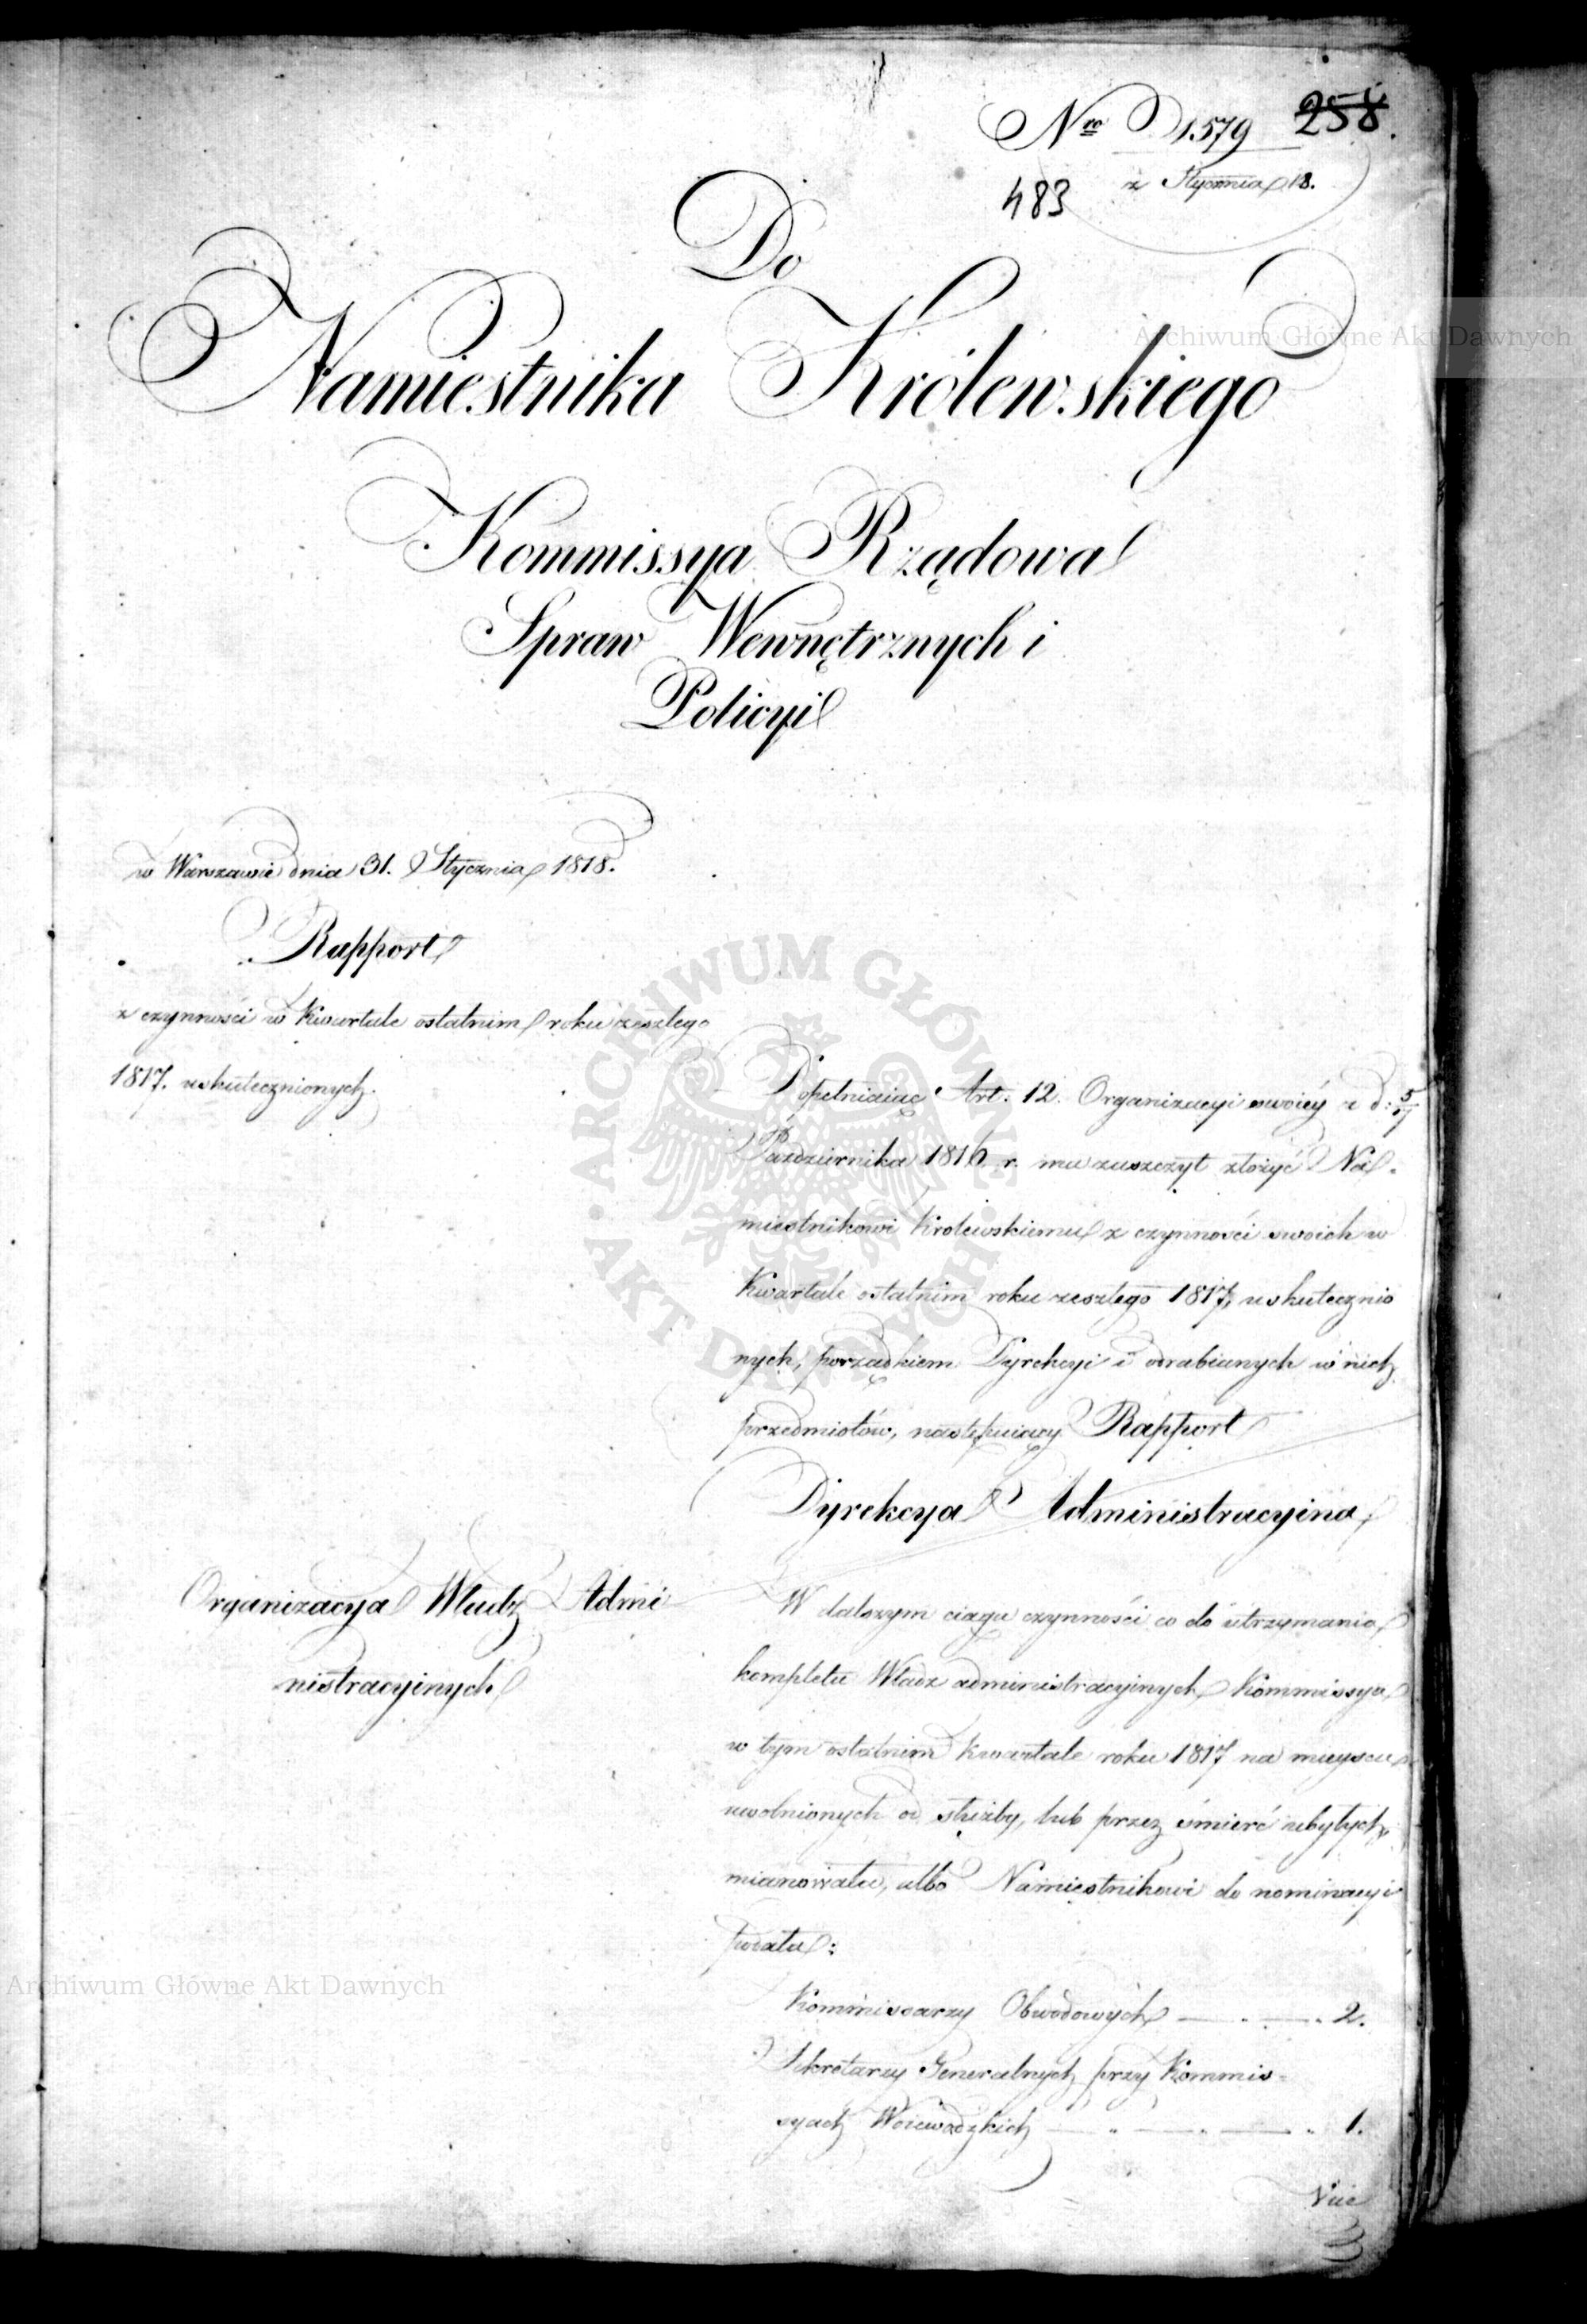 Nro 1579 258.
z Stycznia 18.
483
Do
Namiestnika Królewskiego
Kommissya Rządowa
Spraw Wewnętrznych i
Policyi
w Warszawie dnia 31. Stycznia 1818.
Rapport
z czynności w Kwartale ostatnim roku zeszłego
1817. uskutecznionych.
Dopełniaiąc Art. 12. Organizacyi swoiéy z d:
Października 1816 r. ma zaszczyt złożyć Na-
miestnikowi Królewskiemu z czynności swoich w
Kwartale ostatnim roku zeszłego 1817, uskutecznio
nych, porządkiem Dyrekcyi i odrabianych w nich
przedmiotów, następuiący Rapport
Dyrekcya Administracyina
Organizacya Władz Admi
nistracyinych
W dalszym ciągu czynności co do utrzymania
kompletu Władz administracyinych Kommissya
w tym ostatnim kwartale roku 1817 na mieyscu
uwolnionych od służby, lub przez śmierć ubyłych,
mianowała, albo Namiestnikowi do nominacyi
podała:
Kommissarzy Obwodowych — . — . 2.
Sekretarzy Generalnych przy Kommis-
syach Woiewódzkich — . — . — . 1.
Archiwum Główne Akt Dawnych
Archiwum Główne Akt Dawnych
ARCHIWUM GŁÓWNE · AKT DAWNYCH ·